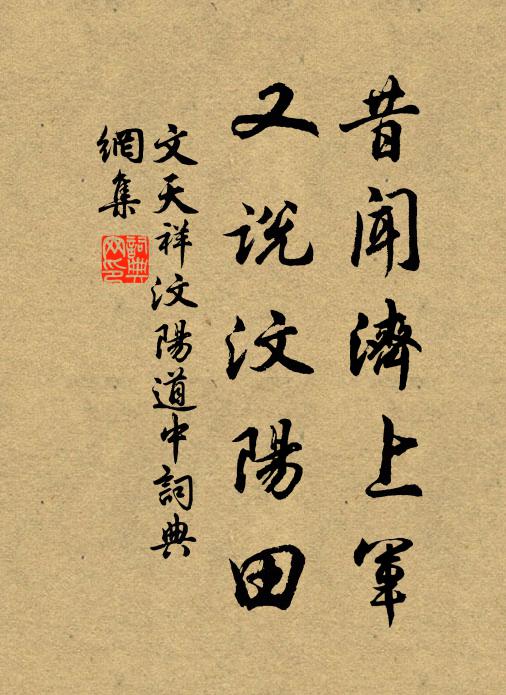 昔聞濟上軍
又説汶陽田
文天祥汶陽道中詞典
網集
詞典網印